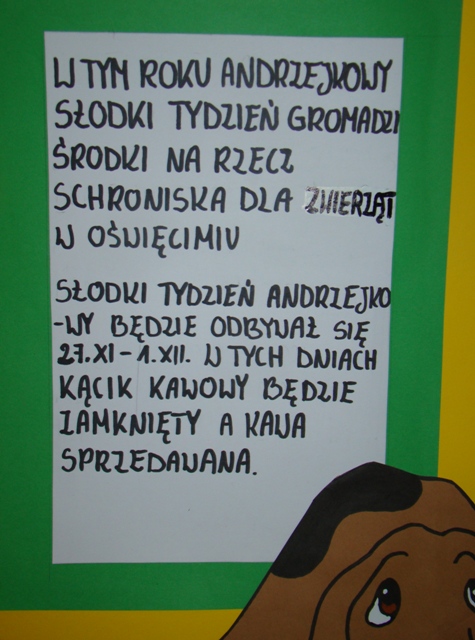 W TYM ROKU ANDRZEJKOWY
SŁODKI TYDZIEŃ GROMADZI
ŚRODKI NA RZECZ
SCHRONISKA DLA ZWIERZĄT
W OŚWIĘCIMIU
SŁODKI TYDZIEŃ ANDRZEJKO
-WY BĘDZIE ODBYWAŁ SIĘ
27.XI - 1.XII. W TYCH DNIACH
KĄCIK KAWOWY BĘDZIE
ZAMKNIĘTY A KAWA
SPRZEDAWANA.